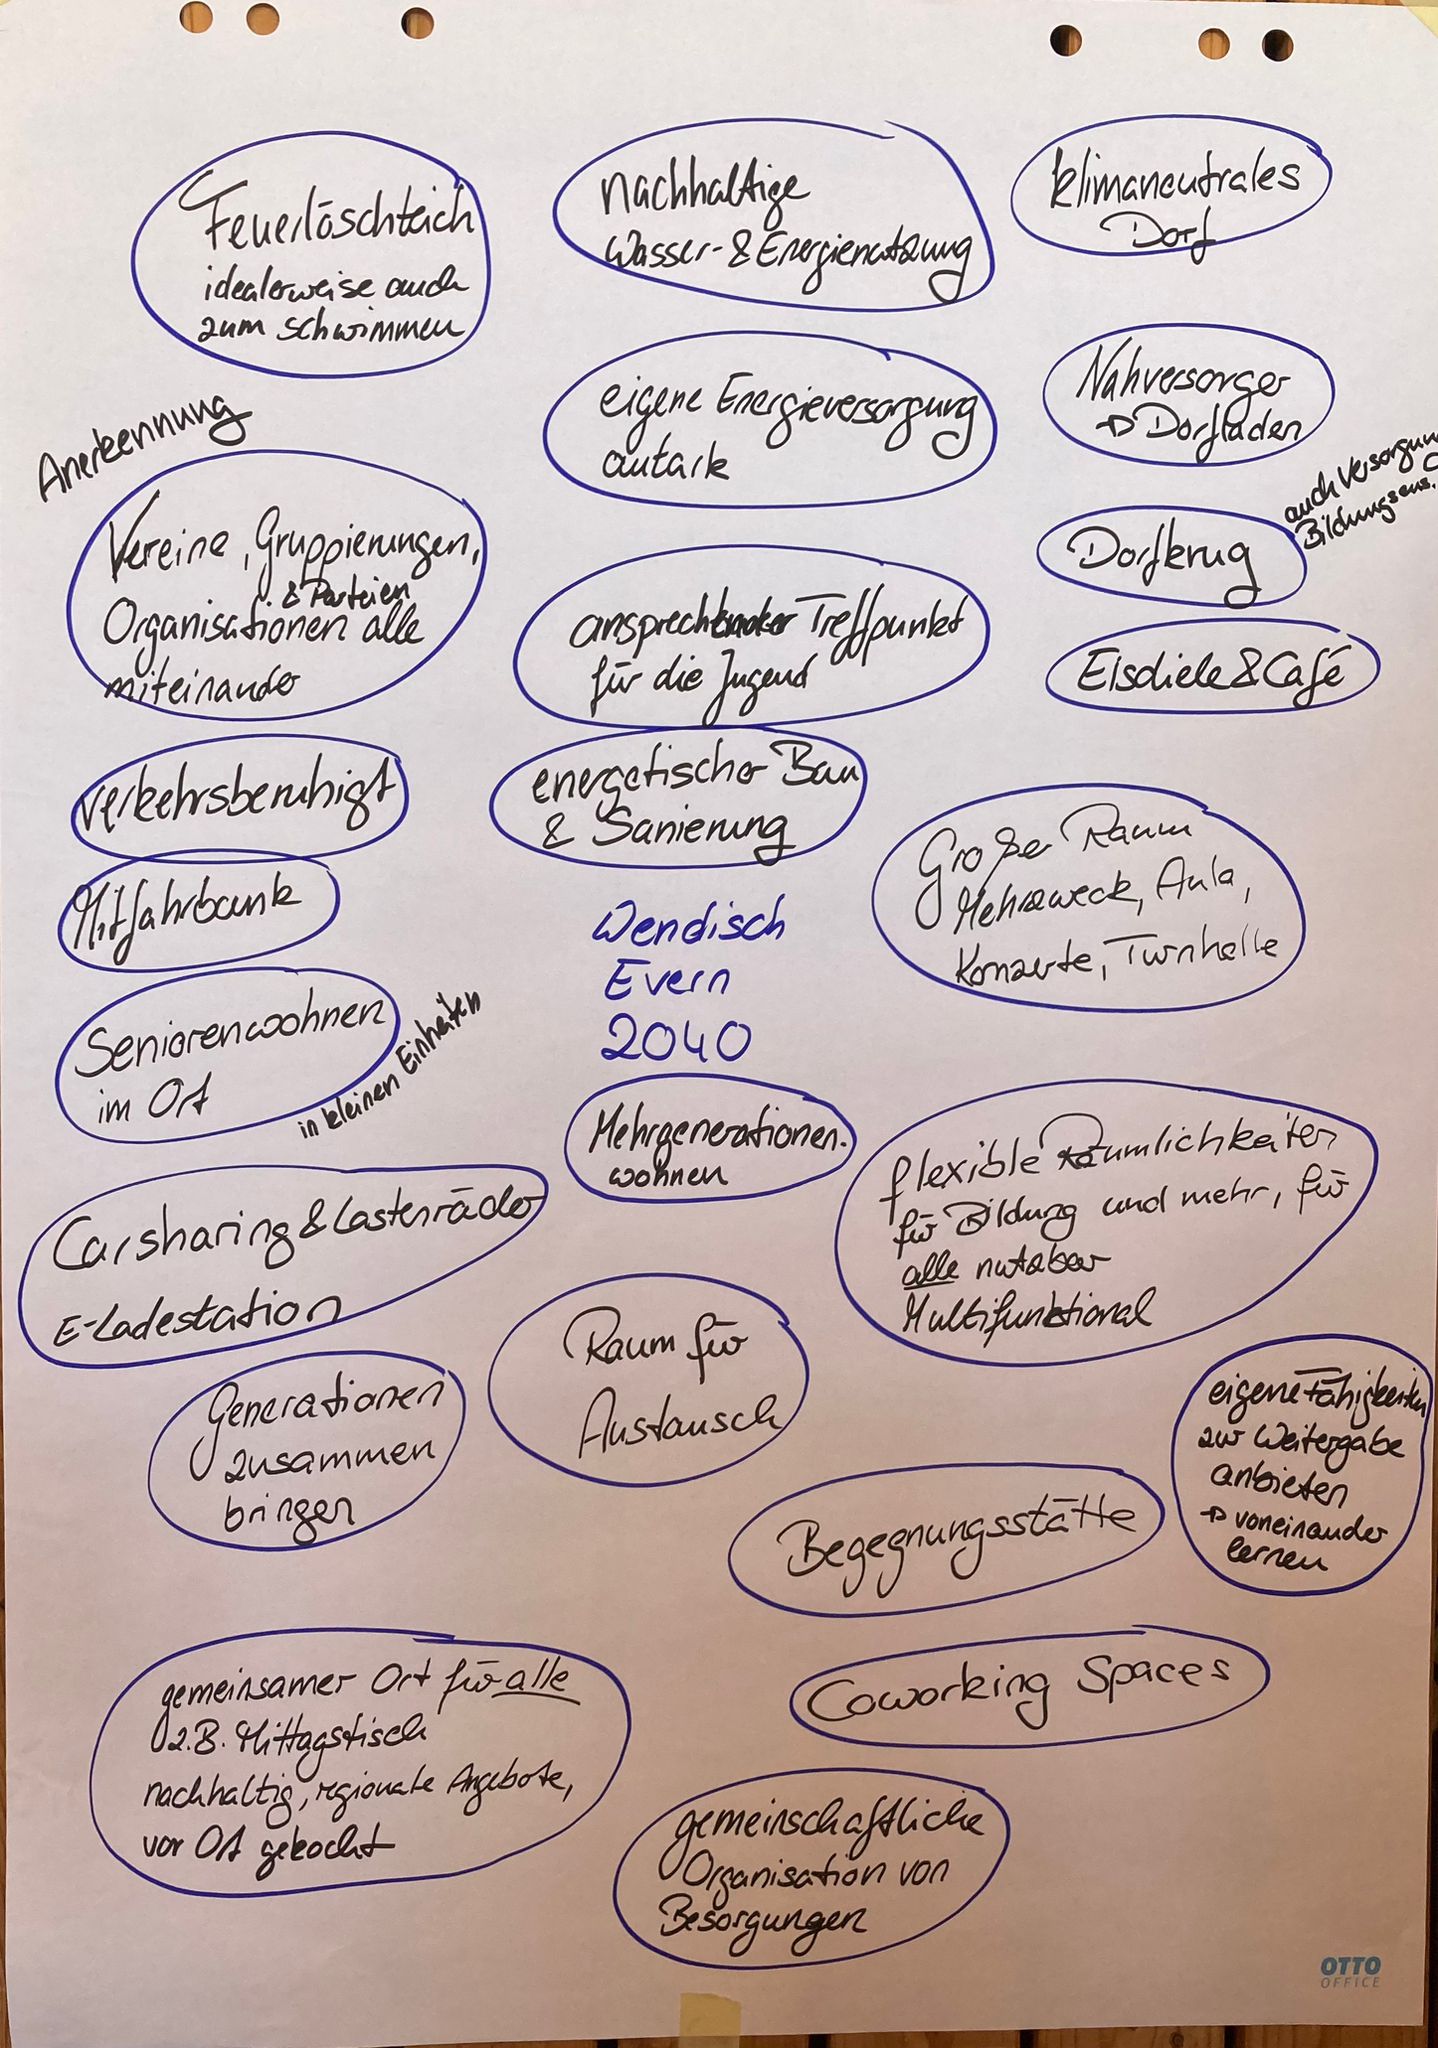 Feuerlöschteich
idealerweise auch
zum schwimmen
nachhaltige
Wasser- & Energienutzung
klimaneutrales
Dorf
eigene Energieversorgung
autark
Nahversorger
→ Dorfladen
Anerkennung
Vereine, Gruppierungen,
& Parteien
Organisationen alle
miteinander
Dorfkrug
auch Versorgung
Bildungsens.
ansprechender Treffpunkt
für die Jugend
Eisdiele & Café
verkehrsberuhigt
energetischer Bau
& Sanierung
Großer Raum
Mehrzweck, Aula,
Konzerte, Turnhalle
Mitfahrbank
Wendisch
Evern
2040
Seniorenwohnen
im Ort
in kleinen Einheiten
Mehrgenerationen-
wohnen
flexible Räumlichkeiten
für Bildung und mehr, für
alle nutzbar
Multifunktional
Carsharing & Lastenräder
E-Ladestation
Raum für
Austausch
Generationen
zusammen
bringen
eigene Fähigkeiten
zur Weitergabe
anbieten
→ voneinander
lernen
Begegnungsstätte
gemeinsamer Ort für alle
z.B. Mittagstisch
nachhaltig, regionale Angebote,
vor Ort gekocht
Coworking Spaces
gemeinschaftliche
Organisation von
Besorgungen
OTTO
OFFICE